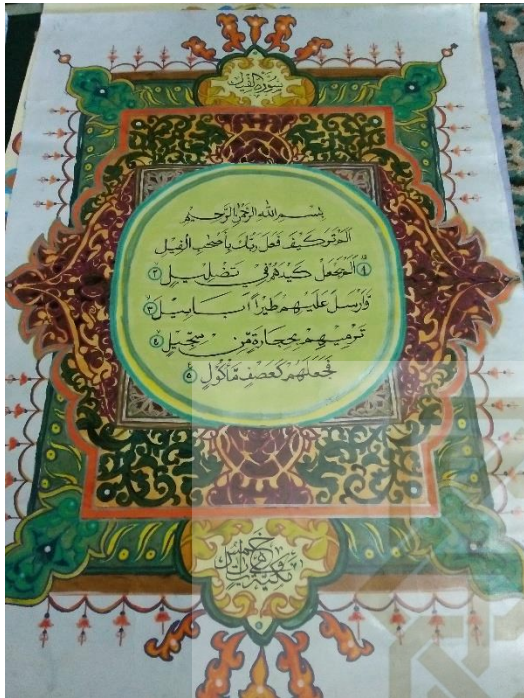 سورة الفيل
بسم الله الرحمن الرحيم
ألم تر كيف فعل ربك بأصحب الفيل
١ ألم يجعل كيدهم في تضليل ٢
وأرسل عليهم طيرا أبابيل ٣
ترميهم بحجارة من سجيل ٤
فجعلهم كعصف مأكول ٥
وهي خمس آيات مكية